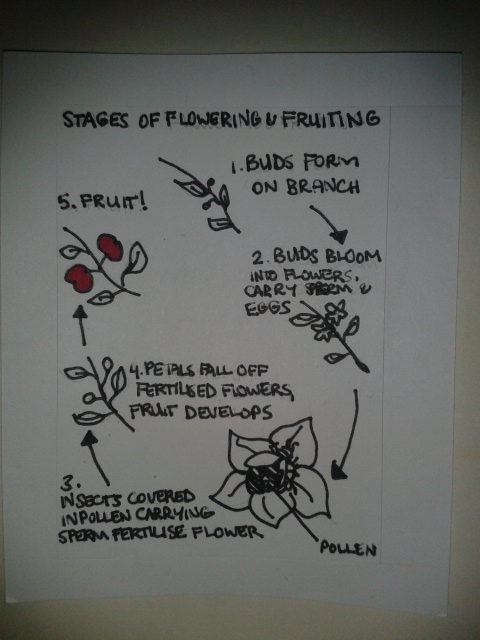 STAGES OF FLOWERING & FRUITING
1. BUDS FORM
ON BRANCH
2. BUDS BLOOM
INTO FLOWERS,
CARRY SPERM &
EGGS
POLLEN
3.
INSECTS COVERED
IN POLLEN CARRYING
SPERM FERTILISE FLOWER
4. PETALS FALL OFF
FERTILISED FLOWERS,
FRUIT DEVELOPS
5. FRUIT!